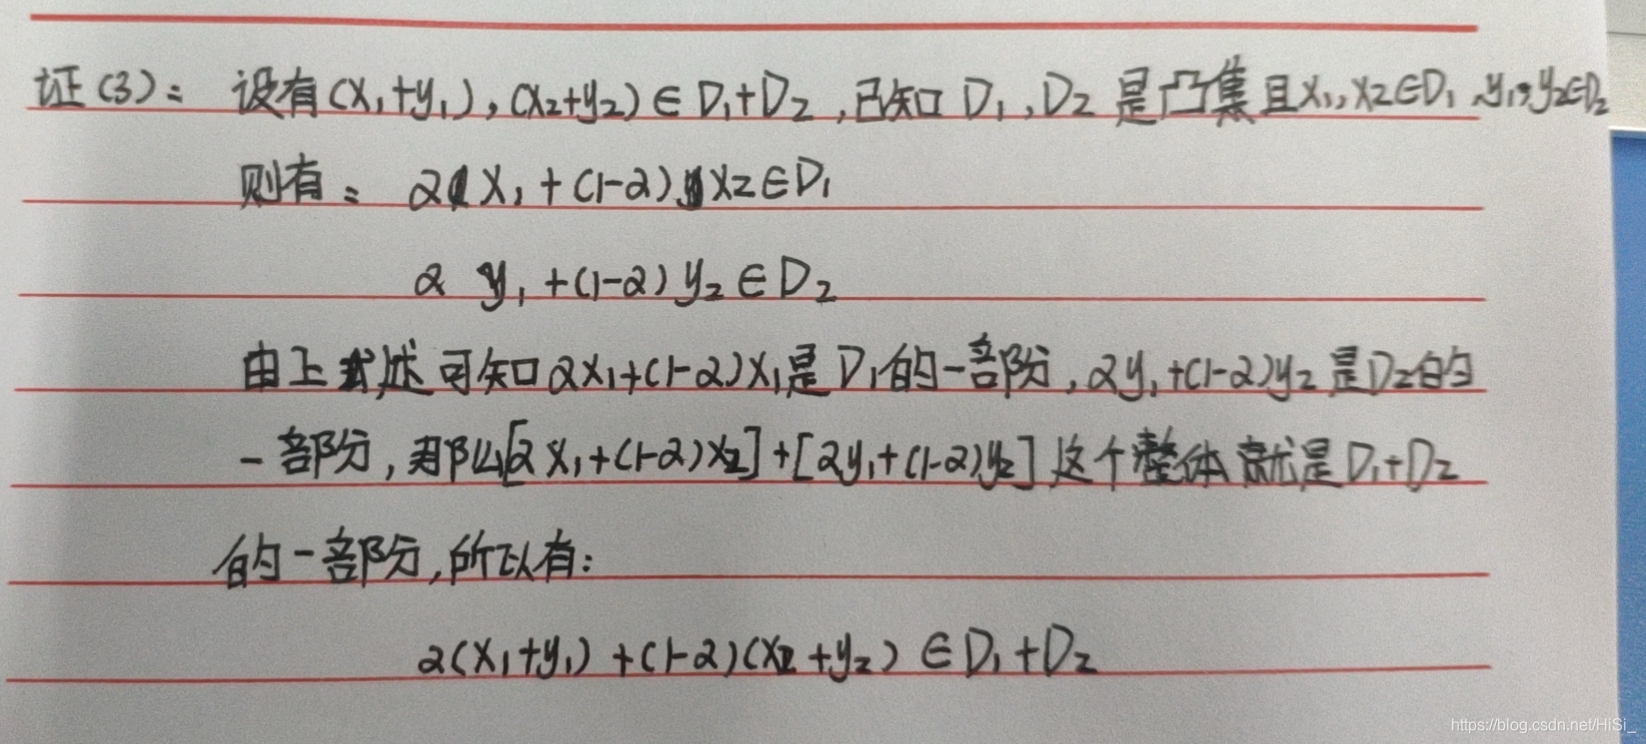 证(3): 设有(x₁+y₁),(x₂+y₂)∈D₁+D₂,已知D₁,D₂是凸集且x₁,x₂∈D₁,y₁,y₂∈D₂
则有: αx₁+(1-α)x₂∈D₁
αy₁+(1-α)y₂∈D₂
由上述可知αx₁+(1-α)x₁是D₁的一部份,αy₁+(1-α)y₂是D₂的
一部分,那么[αx₁+(1-α)x₂]+[αy₁+(1-α)y₂]这个整体就是D₁+D₂
的一部分,所以有:
α(x₁+y₁)+(1-α)(x₂+y₂)∈D₁+D₂
https://blog.csdn.net/HiSi_